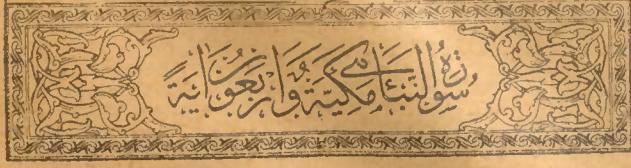 سُورَةُ النَّبَأِ مَكِّيَّةٌ وَأَرْبَعُونَ آيَةً